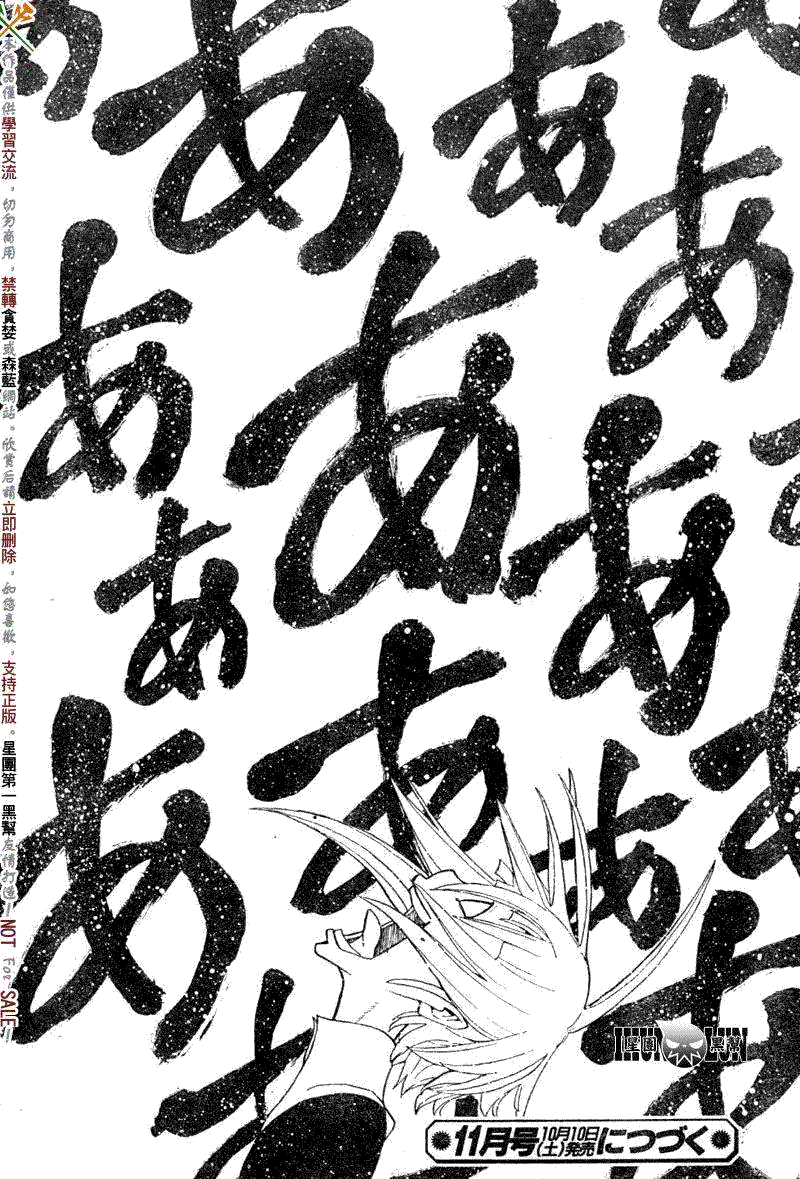 あ
あ
あ
あ
あ
あ
あ
あ
あ
あ
あ
あ
あ
本作品僅供學習交流，切勿商用，禁轉貪婪或森藍網站。欣賞后請立即刪除，如您喜歡，支持正版。星團第一黑幫友情打造—NOT For SALE—
星團 黑幫
11月号 10月10日(土)発売 につづく